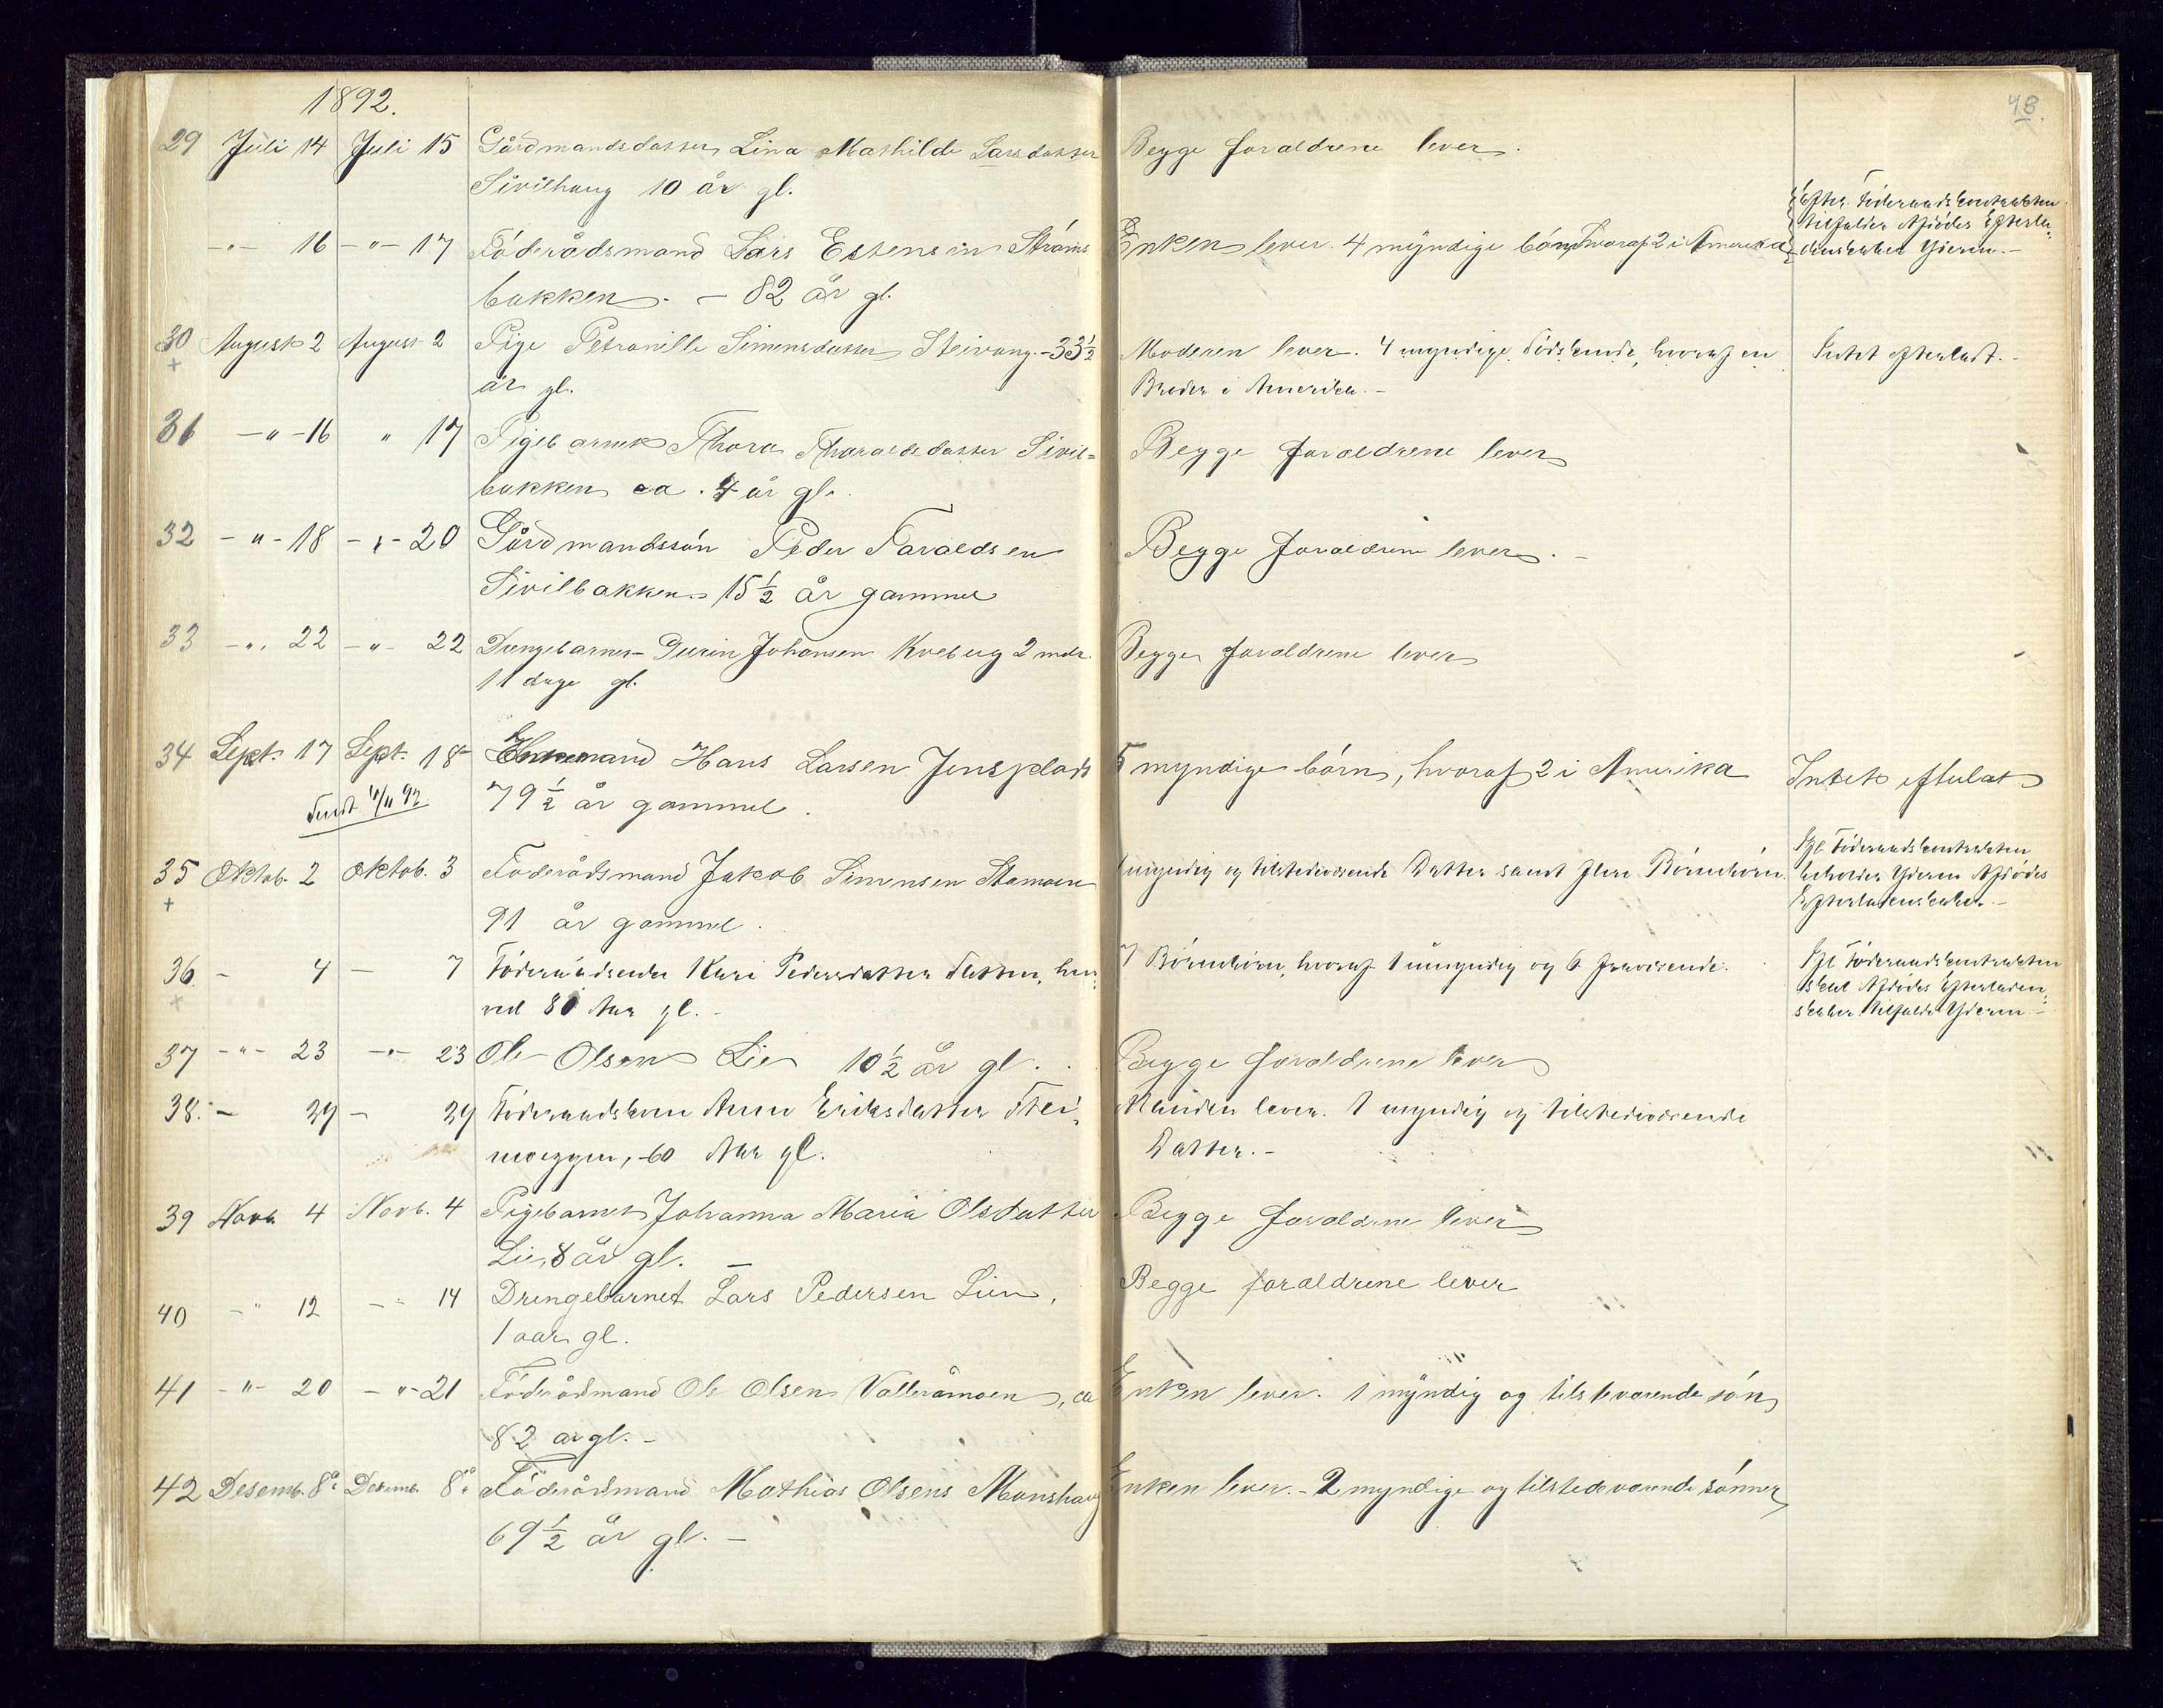 1892.
48.
29 Juli 14 Juli 15 Gårdmandsdatter Lina Mathilde Larsdatter Begge forældrene lever.
Sivilhaug 10 år gl.
Efter Föderaadskontrakten
tilfalder Afdödes Efterla-
-"- 16 -"- 17 Föderådsmand Lars Estensen Ströms Enken lever. 4 myndige börn, hvoraf 2 i Amerika denskaber Yderen.-
bakken. - 82 år gl.
30 August 2 August 2 Pige Petronille Simensdatter Steivang. - 33½ Moderen lever. 4 myndige Södskende, hvoraf en Intet efterladt.-
+ år gl. Broder i Amerika.-
31 -"- 16 " 17 Pigebarnet Thora Tharaldsdatter Sivil= Begge forældrene lever
bakken ca. 4 år gl.
32 -"- 18 -"- 20 Gårdmandssön Peder Taraldsen Begge forældrene lever. -
Sivilbakken 15½ år gammel
33 -"- 22 -"- 22 Drengebarnet Johansen Kveberg 2 mdr. Begge forældrene lever
11 dage gl.
34 Sept. 17 Sept. 18 Enkemand Hans Larsen Jensplads 5 myndige börn, hvoraf 2 i Amerika Intet efterlat
79½ år gammel.
Tundt 4/11 92
35 Oktob. 2 Oktob. 3 Föderådsmand Jakob Simensen Stamoen 1 myndig og tilstedeværende Datter samt flere Börnebörn. Ifl. Föderaadskontrakten
beholder Yderen Afdödes
+ 91 år gammel. Efterladenskaber.-
36 - 4 - 7 Föderaadsenke Kari Pedersdatter Flatten, hen- 7 Börnebörn, hvoraf 1 umyndig og 6 fraværende. Ifl Föderaadskontrakten
+ ved 80 Aar gl. - skal Afdödes Efterladen-
skaber tilfalde Yderen.-
37 -"- 23 -"- 23 Ole Olsen Lie 10½ år gl. Begge forældrene lever
38. - 29 - 29 Föderaadskone Anne Eriksdatter Manden lever. 1 myndig og tilstedeværende
moeggen, -60 Aar gl. Datter.-
39 Novb. 4 Novb. 4 Pigebarnet Johanna Maria Olsdatter Begge forældrene lever
Lie, 8 år gl. -
40 -"- 12 -"- 14 Drengebarnet Lars Pedersen Lien, Begge forældrene lever
1 aar gl.
41 -"- 20 -"- 21 Föderådmand Ole Olsen Vollråmoen, ca Enken lever. 1 myndig og tilsteværende sön
82 år gl. -
42 Desemb. 8 Desemb. 8 Föderådmand Mathias Olsens Monshaug Enken lever. - 2 myndige og tilstedeværende sönner
69½ år gl. -